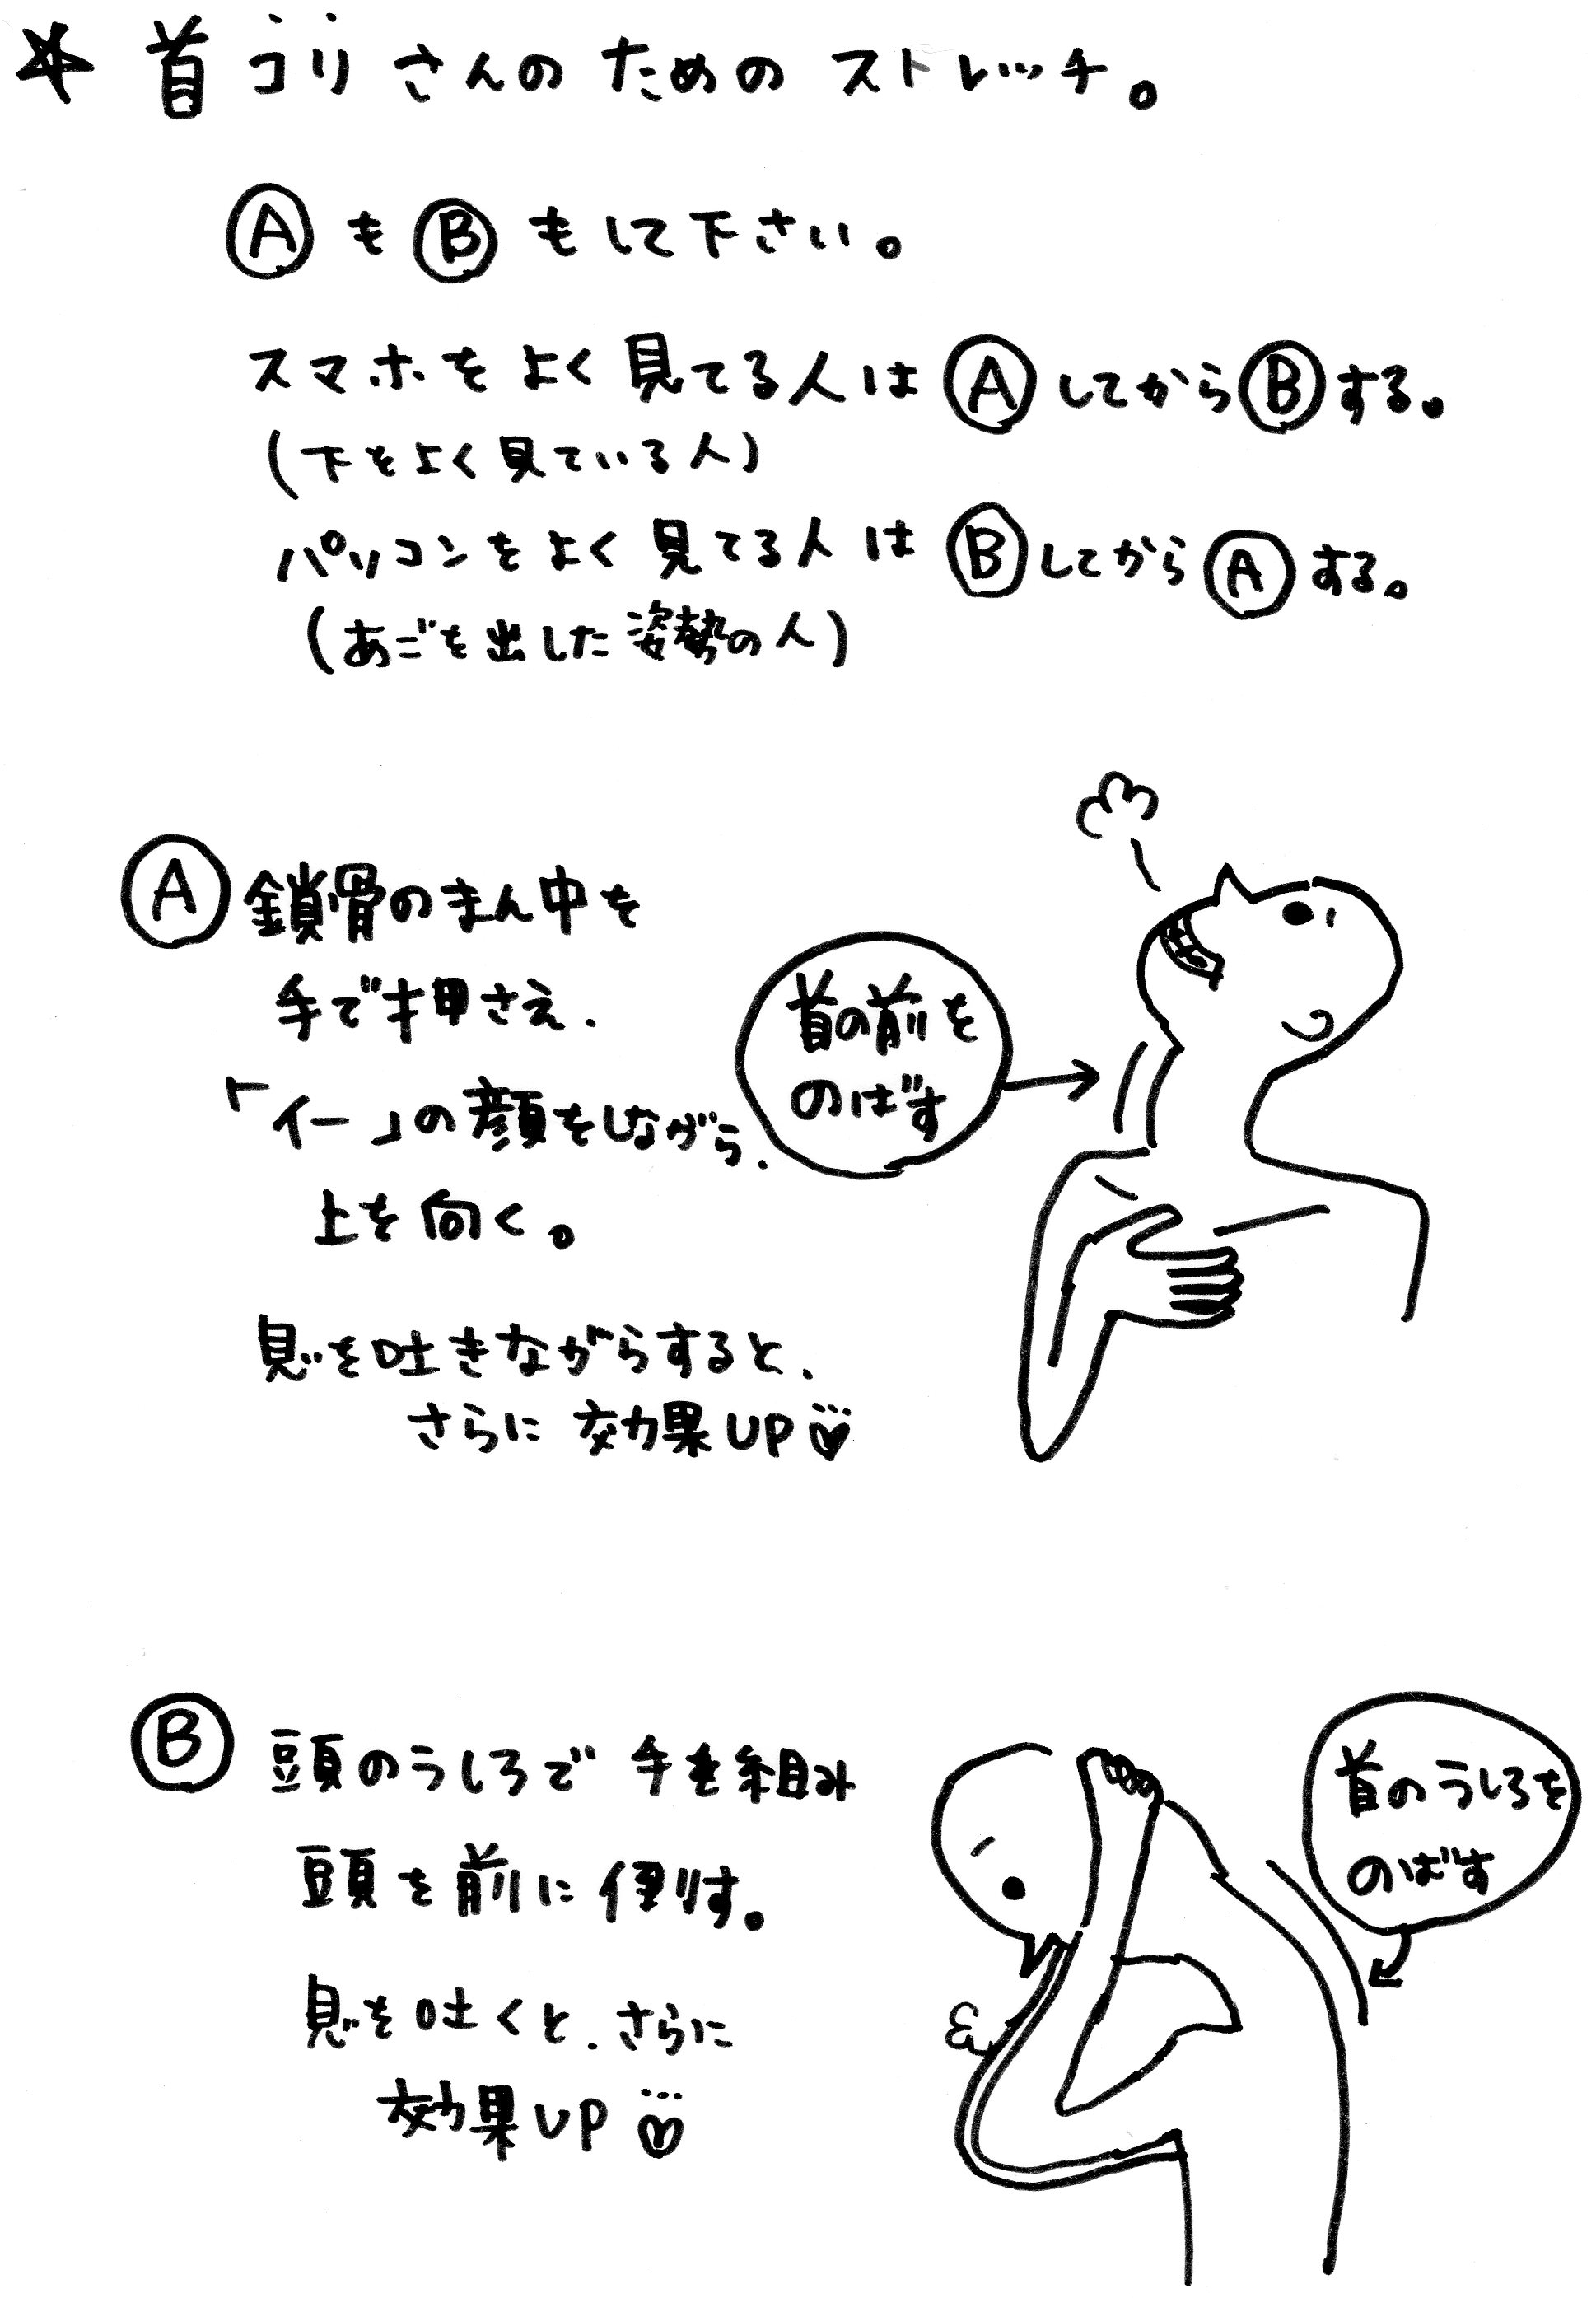 ★ 首コリさんのためのストレッチ。
Ⓐ も Ⓑ もして下さい。
スマホをよく見てる人は Ⓐ してから Ⓑ する。
(下をよく見ている人)
パソコンをよく見てる人は Ⓑ してから Ⓐ する。
(あごを出した姿勢の人)
Ⓐ 鎖骨のまん中を
手で押さえ、
「イー」の顔をしながら、
上を向く。
息を吐きながらすると、
さらに効果UP♡
首の前を
のばす
Ⓑ 頭のうしろで手を組み
頭を前に倒す。
息を吐くと、さらに
効果UP♡
首のうしろを
のばす